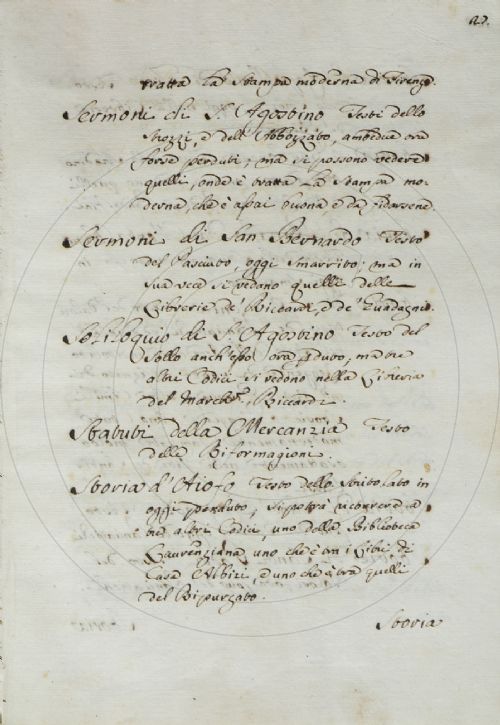 27.
tratta La Stampa moderna di Firenze.
Sermoni di S. Agostino Testi dello
Strozzi, e dell'Abbozzato, amendue ora
forse perduti; ma si possono vedere
quelli, onde è tratta La Stampa mo-
derna, che è assai buona e da fidarsene.
Sermoni di San Bernardo Testo
del Pasciuto, oggi smarrito; ma in
sua vece si vedano quelli delle
Librerie de' Riccardi, e de' Guadagni.
Soliloquio di S. Agostino Testo del
Sollo anch'esso ora perduto, ma tre
altri Codici si vedono nella Libreria
del March. Riccardi.
Statuti della Mercanzia Testo
delle Riformagioni.
Storia d'Aiolfo Testo dello Stritolato in
oggi perduto, si potrà ricorrere a
tre altri Codici, uno della Biblioteca
Laurenziana, uno che è tra i Libri di
Casa Albizi, e uno che è tra quelli
del Ripurgato.
Storia